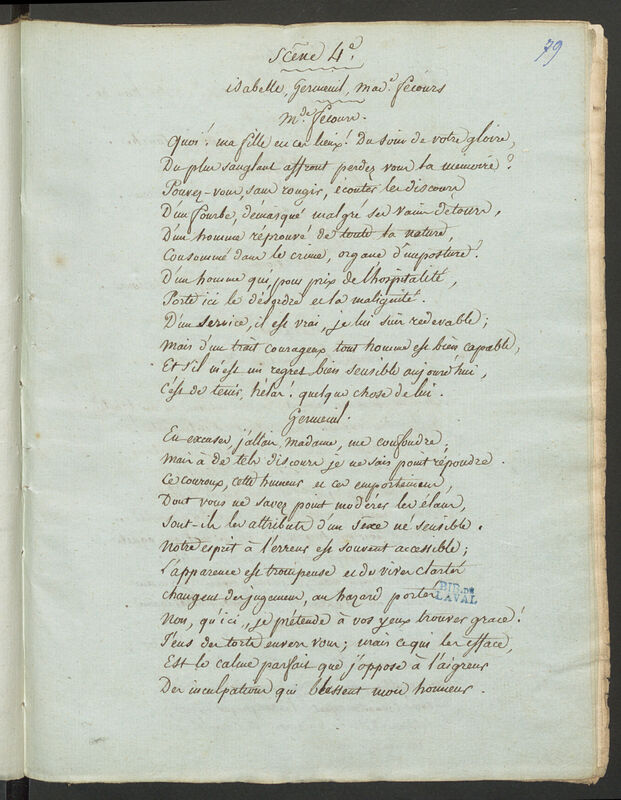 79
Scène 4e.
isabelle, Germeuil, made. fécours
Mde. fécour.
Quoi! ma fille en ces lieux! Du soin de votre gloire,
Du plus sanglant affront perdez vous la mémoire?
Pouvez-vous, sans rougir, écouter les discours
D'un fourbe, démasqué malgré ses vains detours,
D'un homme réprouvé de toute la nature,
Consommé dans le crime, organe d'imposture?
D'un homme qui, pour prix de l'hospitalité,
Porte ici le désordre et la malignité.
D'un service, il est vrai, je lui suis redevable;
Mais d'un trait courageux tout homme est bien capable,
Et s'il m'est un regret bien sensible aujourd'hui,
C'est de tenir, hélas! quelque chose de lui.
Germeuil.
En excuses, j'allais, madame, me confondre;
Mais à de tels discours je ne sais point répondre.
Ce couroux, cette humeur et cet emportement,
Dont vous ne savez point modérer les élans,
Sont-ils les attributs d'un sexe né sensible.
Notre esprit à l'erreur est souvent accessible;
L'apparence est trompeuse et de vives clartés
Changent des jugemens, au hazard portés
Non, qu'ici, je prétende à vos yeux trouver grace!
J'eus des torts envers vous; mais ce qui les efface,
Est le calme parfait que j'oppose à l'aigreur
Des inculpations qui blessent mon honneur.
BIB. DE
LAVAL